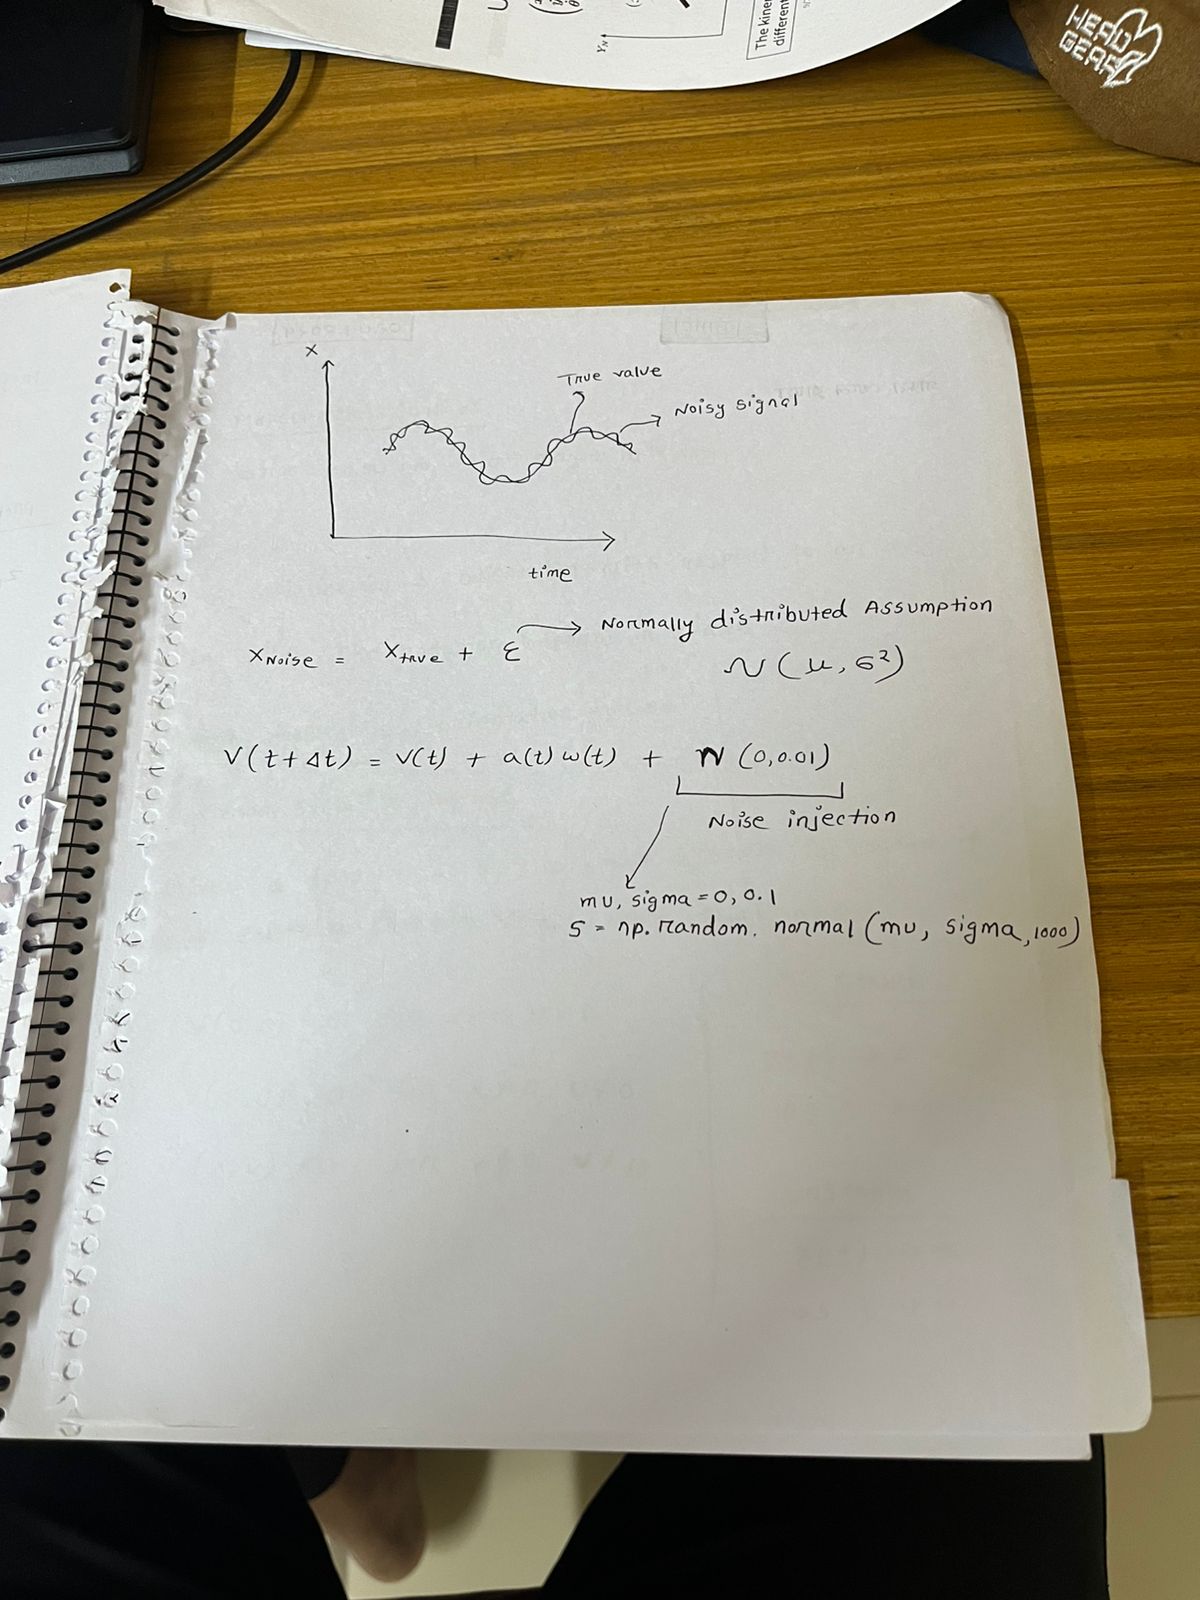 The kiner
different
Y_N
HEAD
GEAR
X
True value
Noisy signal
time
Normally distributed Assumption
X_Noise = X_true + ε
N(μ, σ²)
V(t+Δt) = V(t) + a(t) ω(t) + N (0,0.01)
Noise injection
mu, sigma = 0, 0.1
S = np. random. normal (mu, sigma, 1000)